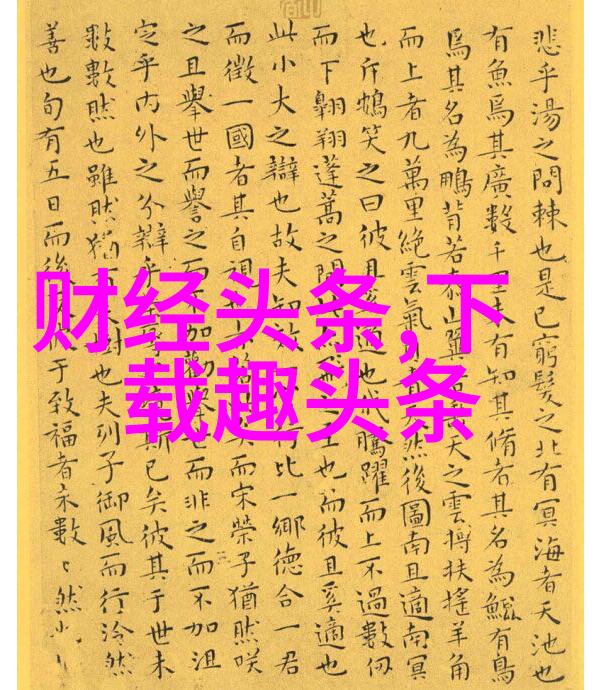 财经头条,下
载趣头条
悲乎湯之問棘也是已窮髮之北有冥海者天池也
有魚焉其廣數千里未有知其脩者其名為鯤有鳥
焉其名為鵬背若泰山翼若天之雲摶扶搖羊角
而上者九萬里絕雲氣青然後圖南且適南冥
也斥鴳笑之曰彼且奚適也我騰躍而上不過數仞
而下翱翔蓬蒿之間飛之至也而彼且奚適也
此小大之辯也故夫知效行比一鄉德合一君
而徵一國者其自視也矣而宋榮子猶然咲
之且舉世而譽之而不加勸舉世而非之而不加沮
定乎內外之分辯乎斯已矣彼其于世未
數數然也雖然猶有未樹也夫列子御風而行泠然
善也旬有五日而後于致福者未數〻然也